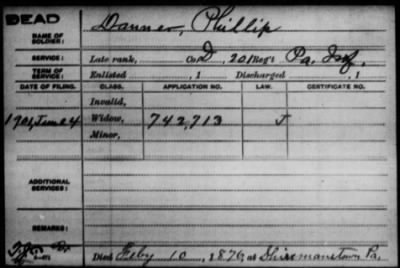 DEAD
NAME OF SOLDIER: Danner, Phillip
SERVICE: Late rank, Co. D, 201 Reg't Pa. Inf.
TERM OF SERVICE: Enlisted , 1 Discharged , 1
DATE OF FILING. CLASS. APPLICATION NO. LAW. CERTIFICATE NO.
Invalid,
1901, June 24 Widow, 742,713 J
Minor,
ADDITIONAL SERVICES:
REMARKS:
Died Feby 10, 1876, at Shiremanstown Pa.